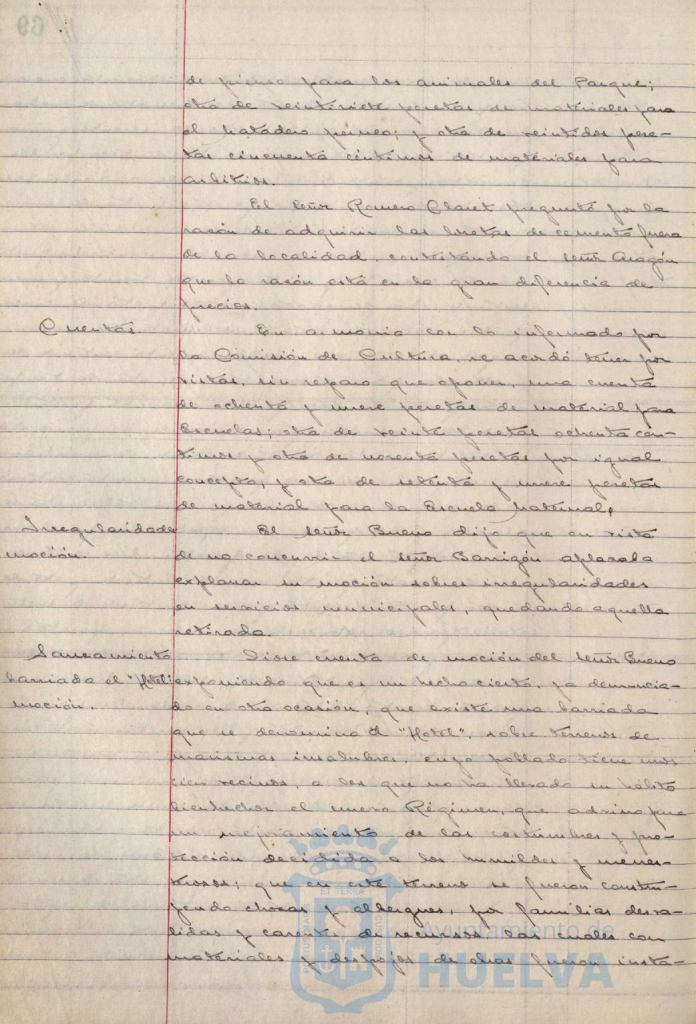 69
de pienso para los animales del Parque;
otra de veintisiete pesetas de materiales para
el matadero ; y otra de veintidos pese-
tas cincuenta céntimos de materiales para
arbitrios.
El señor Romero Claret preguntó por la
razón de adquirir las losetas de cemento fuera
de la localidad, contestando el señor Aragón
que la razón está en la gran diferencia de
precios.
Cuentas.
En armonía con lo informado por
la Comisión de Cultura, se acordó tener por
vistas, sin reparo que oponer, una cuenta
de ochenta y nueve pesetas de material para
Escuelas; otra de veinte pesetas ochenta cén-
timos y otra de noventa pesetas por igual
concepto, y otra de setenta y nueve pesetas
de material para la Escuela Maternal.
Irregularidades
moción.
El señor Bueno dijo que en vista
de no concurrir el señor Barrigón aplazaba
explanar su moción sobre irregularidades
en servicios municipales, quedando aquella
retirada.
Saneamiento
barriada el "Hotel"
moción.
Diose cuenta de moción del señor Bueno
exponiendo que es un hecho cierto, ya denuncia-
do en otra ocasión, que existe una barriada
que se denomina el "Hotel", sobre terrenos de
marismas insalubres, cuyo poblado tiene unos
cien vecinos, a los que no ha llevado su hálito
bienhechor el nuevo Régimen, que advino para
un mejoramiento de las costumbres y pro-
tección decidida a los humildes y menes-
terosos; que en este terreno se fueron constru-
yendo chozas y albergues, por familias desva-
lidas y carente de recursos, las cuales con
materiales y despojos de obras fueron insta-
Ayuntamiento de
HUELVA